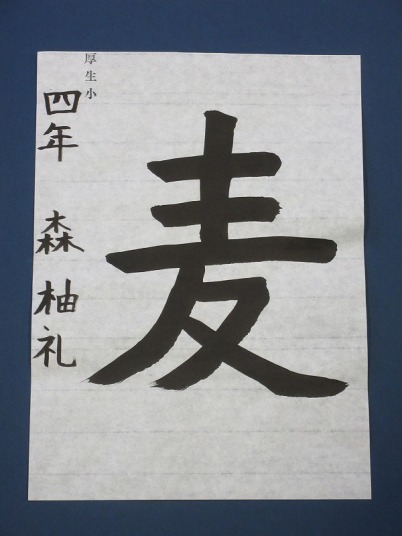 麦
厚生小
四年 森柚礼